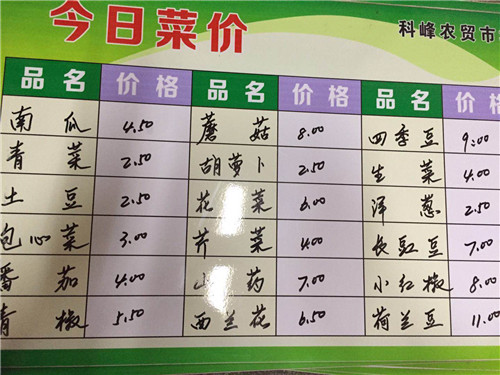 今日菜价
科峰农贸市
品名 价格 品名 价格 品名 价格
南瓜 4.50 蘑菇 8.00 四季豆 9.00
青菜 2.50 胡萝卜 2.50 生菜 4.00
土豆 2.50 花菜 6.00 洋葱 2.50
包心菜 3.00 芹菜 4.00 长豇豆 7.00
番茄 4.00 山药 7.00 小红椒 8.00
青椒 5.50 西兰花 6.50 荷兰豆 11.00